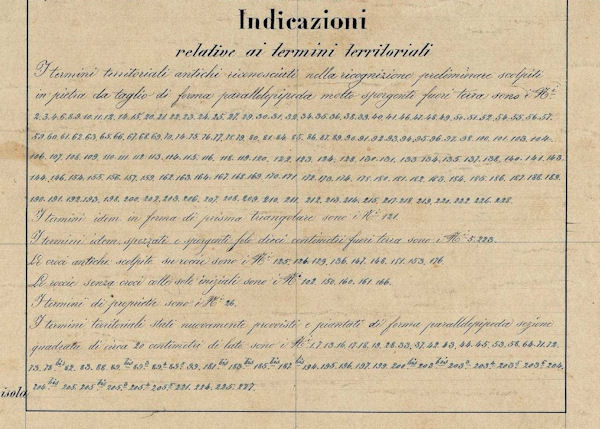 Indicazioni
relative ai termini territoriali
I termini territoriali antichi riconosciuti nella ricognizione preliminare scolpiti
in pietra da taglio di forma parallelepipeda molto sporgenti fuori terra sono i Nⁱ
2. 3. 4. 6. 8. 9. 10. 11. 12. 14. 15. 20. 21. 22. 23. 24. 25. 27. 29. 30. 31. 32. 34. 35. 36. 38. 39. 40. 41. 46. 47. 48. 49. 50. 51. 52. 54. 55. 56. 57.
59. 60. 61. 62. 63. 65. 66. 67. 68. 69. 70. 74. 75. 76. 77. 78. 79. 80. 81. 84. 85. 86. 87. 89. 90. 91. 92. 93. 94. 95. 96. 97. 98. 100. 101. 103. 104.
106. 107. 108. 109. 110. 111. 112. 113. 114. 115. 116. 118. 119. 120. 122. 123. 124. 128. 130. 131. 133. 134. 135. 137. 138. 140. 141. 143.
144. 146. 154. 155. 156. 157. 159. 162. 163. 164. 167. 168. 169. 170. 171. 172. 173. 174. 178. 180. 181. 182. 183. 184. 185. 186. 187. 188. 189.
190. 191. 192. 193. 198. 200. 202. 203. 206. 207. 208. 209. 210. 211. 212. 213. 214. 215. 217. 218. 219. 221. 222. 226. 228.
I termini idem in forma di prisma triangolare sono i Nⁱ 121.
I termini idem, spezzati e sporgenti solo dieci centimetri fuori terra sono i Nⁱ 5. 223.
Le croci antiche scolpite su roccie sono i Nⁱ 125. 126. 129. 136. 147. 148. 151. 153. 176.
Le roccie senza croci colle sole iniziali sono i Nⁱ 102. 150. 160. 161. 166.
I termini di proprietà sono i Nⁱ 26.
I termini territoriali stati nuovamente provvisti e piantati di forma parallelepipeda sezione
quadrata di circa 20 centimetri di lato sono i Nⁱ 1. 7. 13. 16. 17. 18. 19. 28. 33. 37. 42. 43. 44. 45. 53. 58. 64. 71. 72.
73. 78 bis 82. 83. 88. 89 bis 99. 181 bis 183 bis 185. 187 bis 194. 195. 196. 197. 199. 200 bis 203 bis 204.
204 bis 205. 205 bis 221. 224. 225. 227.
isola